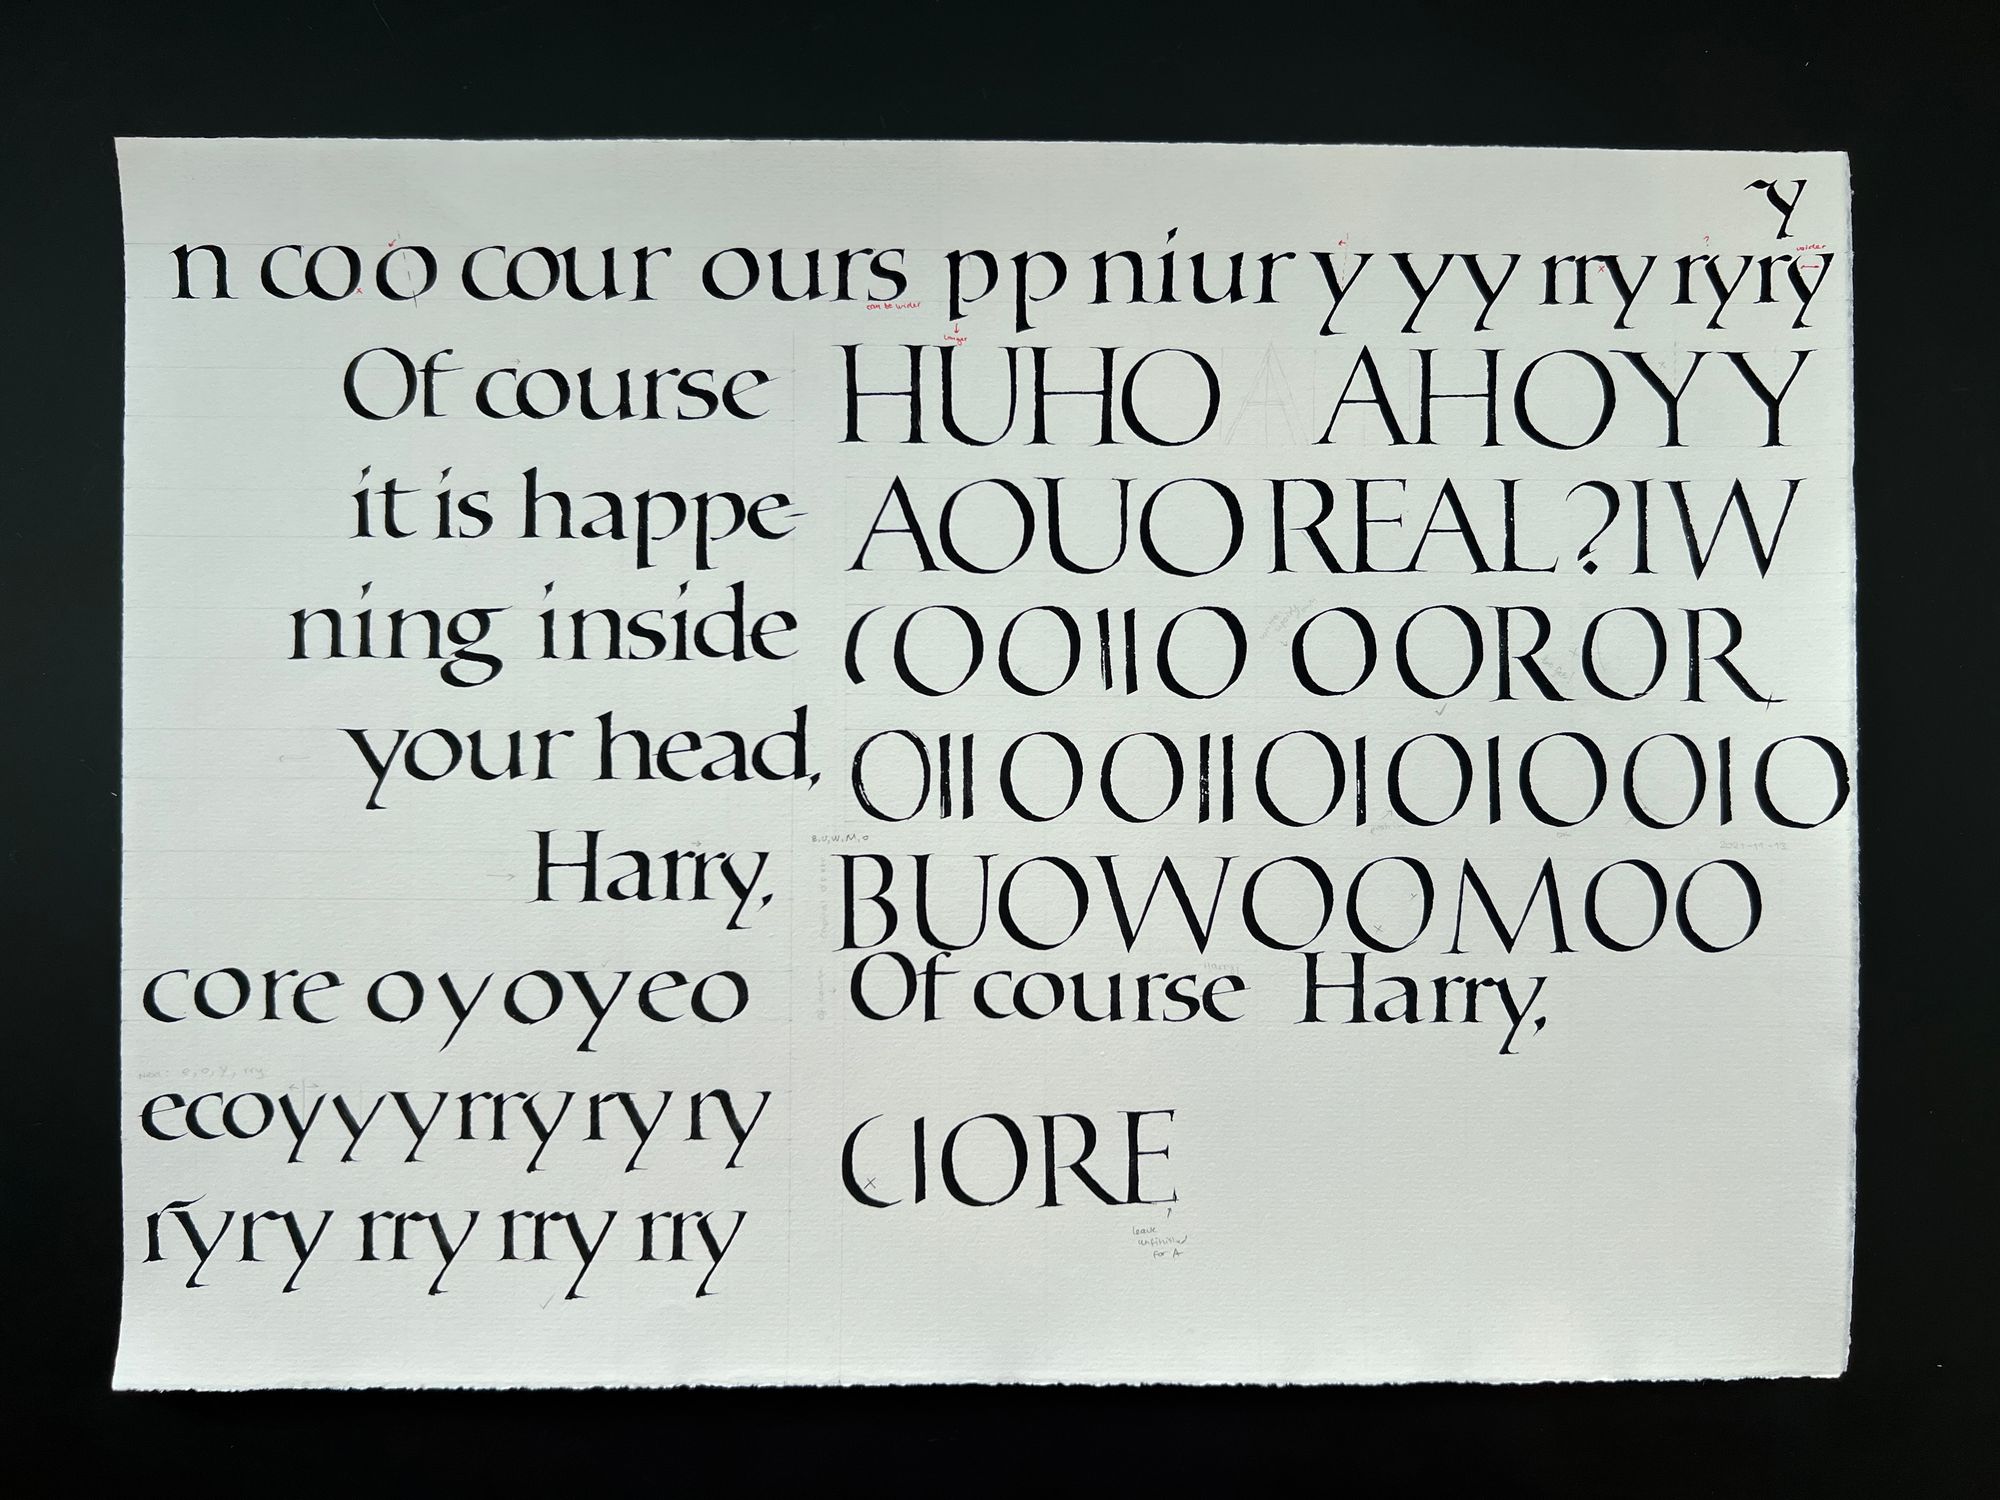 y
n co o cour ours pp niur y yy rry ryry
can be wider
longer
wider
Of course
it is happe-
ning inside
your head,
Harry,
core oyoyeo
Need: e, o, y, rry
ecoyyyrryryry
ryry rry rry rry
HUHO AHOYY
AOUO REAL?IW
(OOIIO OOROR
OIIOOIIOIOIOOIO
2021-11-13
B, U, W, M, O
BUOWOOMOO
Of course Harry,
Harry,
CIORE
leave
unfinished
for A